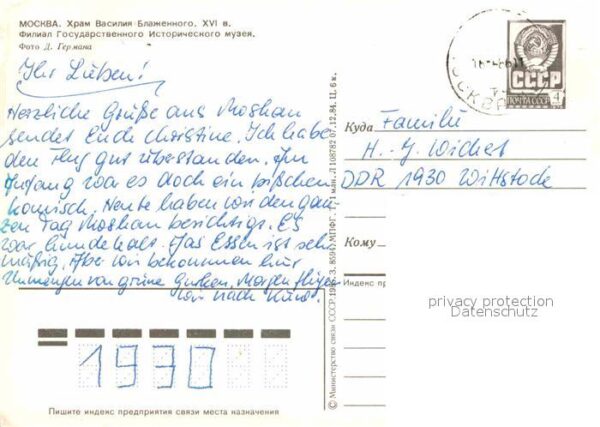 МОСКВА. Храм Василия Блаженного. XVI в.
Филиал Государственного Исторического музея.
Фото Д. Германа
Ihr Lieben!
Herzliche Grüße aus Moskau
sendet Euch Christine. Ich habe
den Flug gut überstanden. Am
Anfang war es doch ein bißchen
komisch. Heute haben wir den gan-
zen Tag Moskau besichtigt. Es
war hundekalt. Das Essen ist sehr
mäßig. Aber wir bekommen hier
Unmengen von grüne Gurken. Morgen fliegen
wir nach
1930
Пишите индекс предприятия связи места назначения
© Министерство связи СССР. 198
З. 8694. МПФГ.
1 млн. Л 108782 07.12.84. Ц. 6 к.
МОСКВА
СССР
ПОЧТА СССР
4
Куда
Familie
H.-J. Wichet
DDR 1930 Wittstock
Кому
Индекс пр
privacy protection
Datenschutz